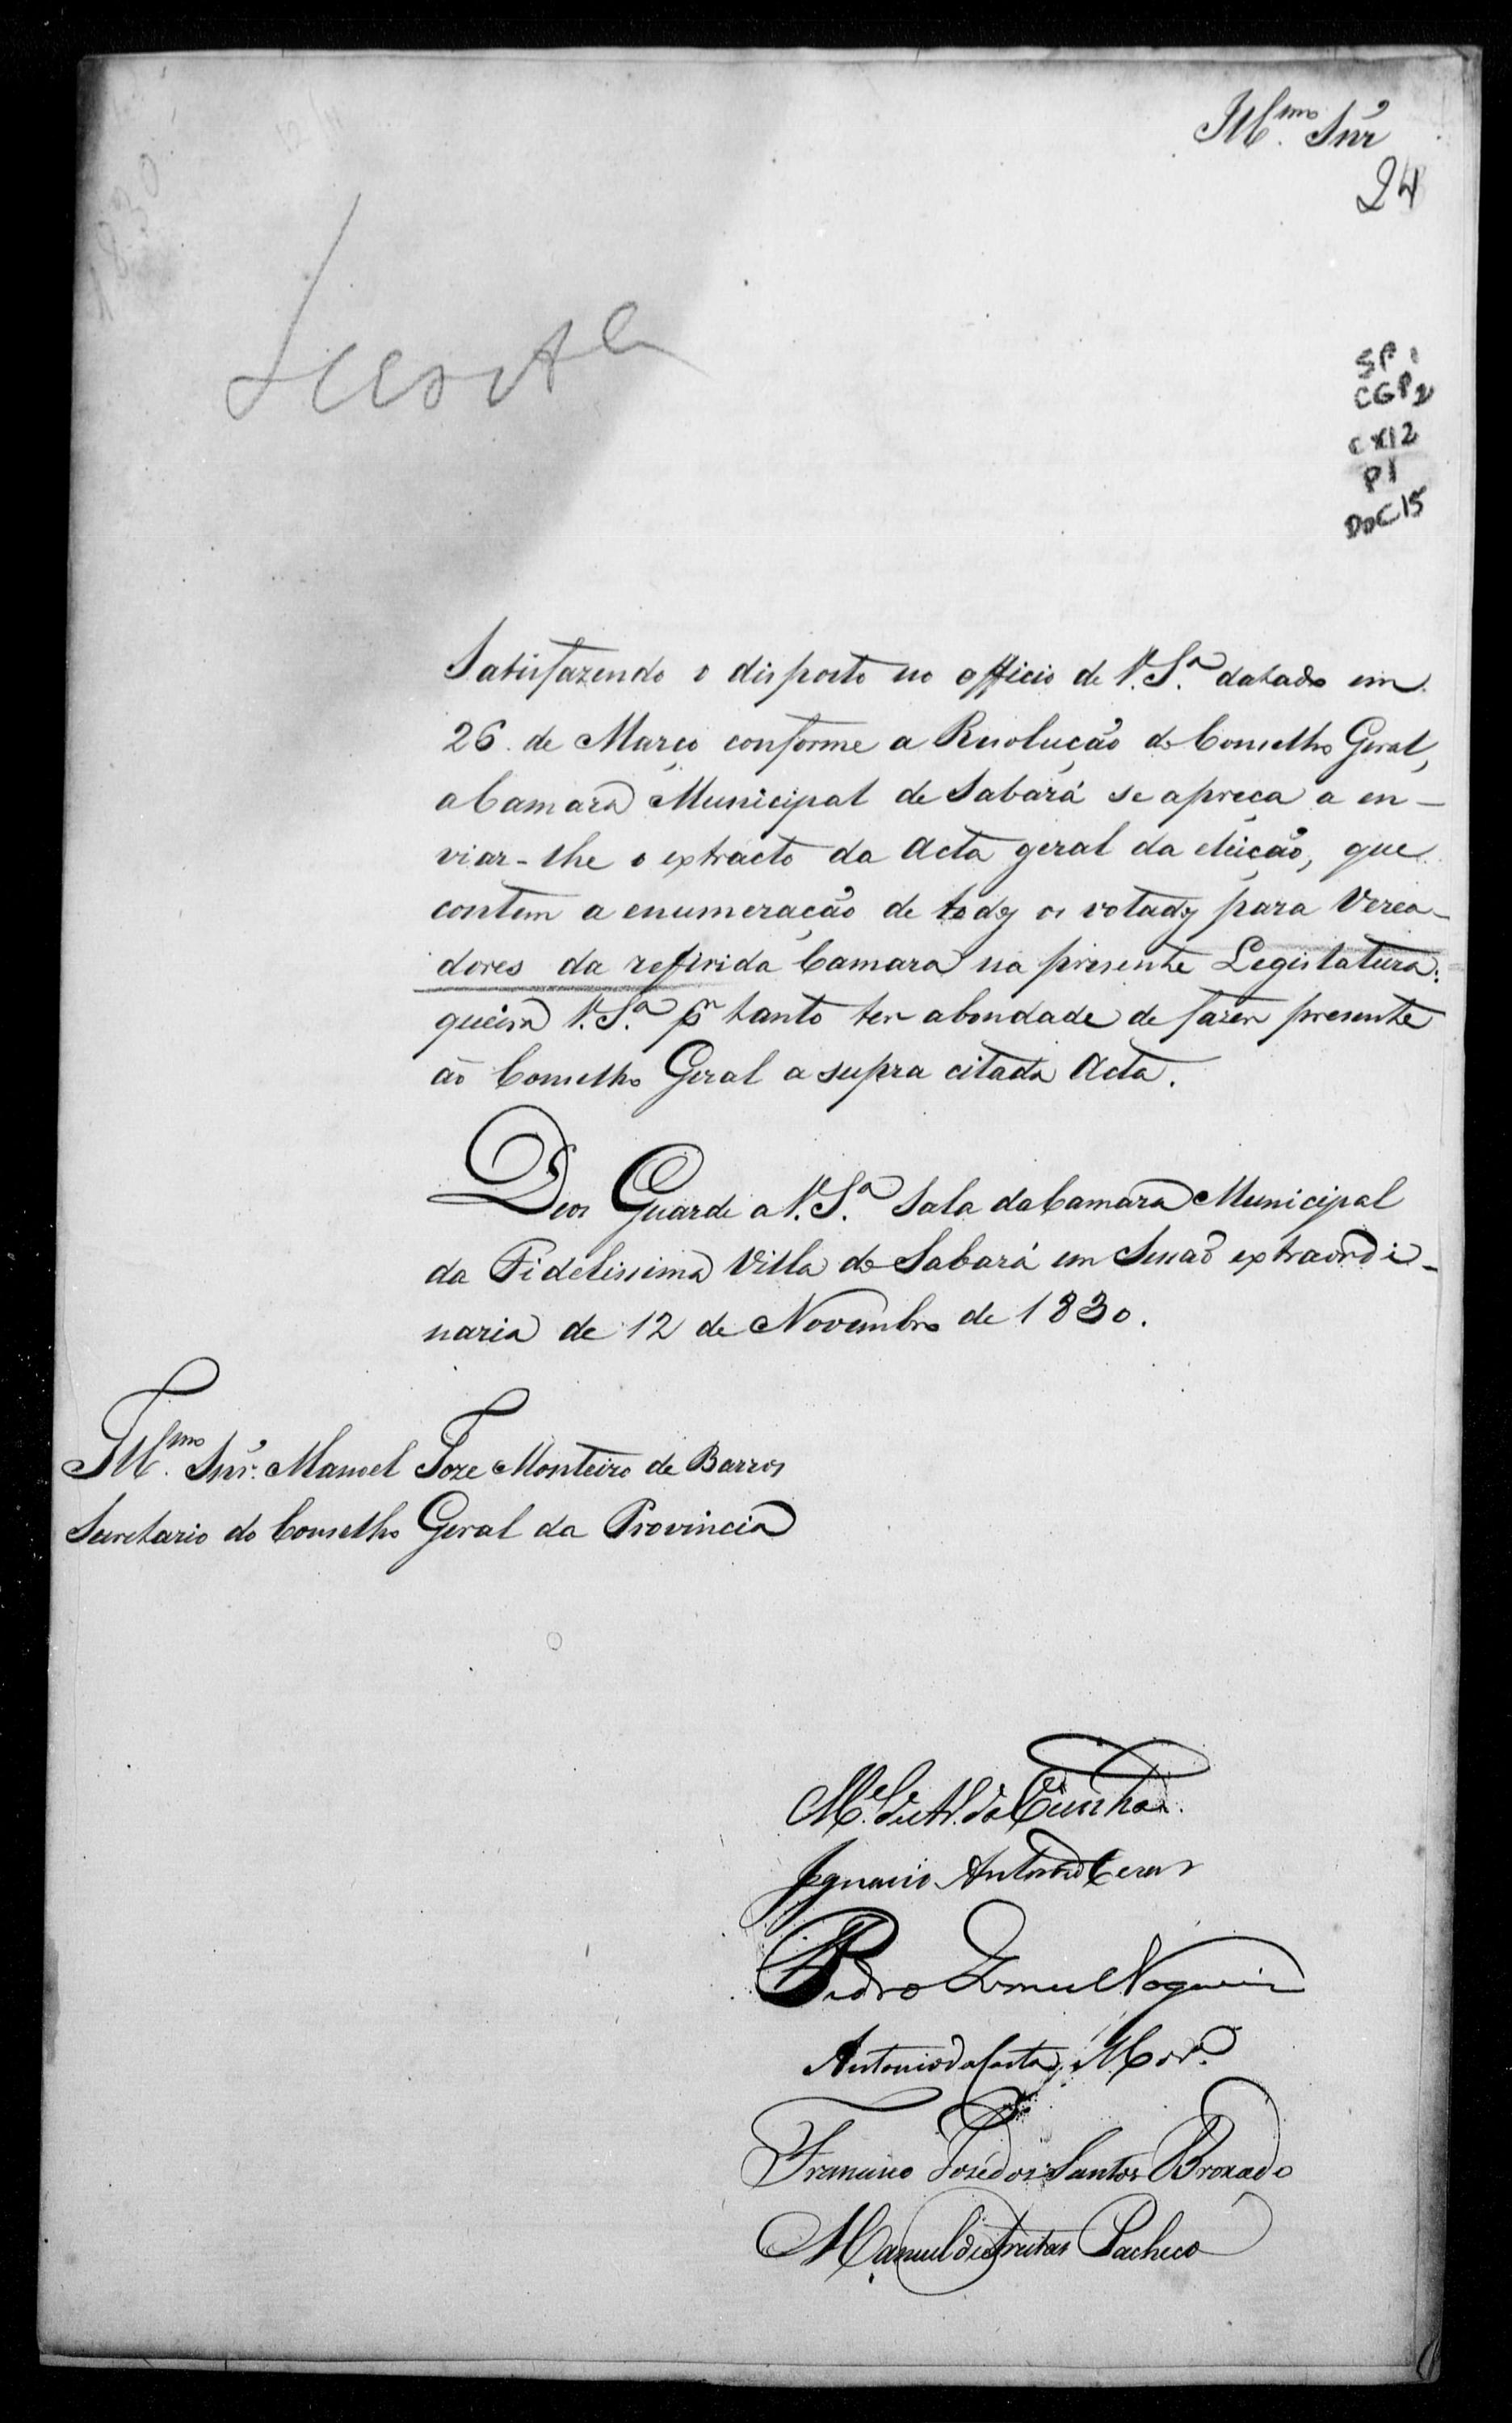 Ill.mo Snr
24
1830
SP 1
CGP 2
CX12
P1
DOC15
Satisfazendo o disposto no officio de V. S.a datado em
26 de Março conforme a Resolução do Conselho Geral,
a Camara Municipal de Sabará se apreça a en-
viar-lhe o extracto da Acta geral da eleição, que
contem a enumeração de todos os votados para Verea-
dores da referida Camara na presente Legislatura:
queira V. S.a pr tanto ter abondade de fazer presente
ao Conselho Geral a supra citada Acta.
Deos Guarde a V. S.a Sala da Camara Municipal
da Fidelissima Villa de Sabará em Sessaõ extraordi-
naria de 12 de Novembro de 1830.
Ill.mo Snr. Manoel Joze Monteiro de Barros
Secretario do Conselho Geral da Provincia
da Cunha
Ignacio Antonio Cezar
Pedro Gomes Nogueira
Antonio da Costa Mor.a
Francisco José dos Santos Broxado
Manuel de Freitas Pacheco